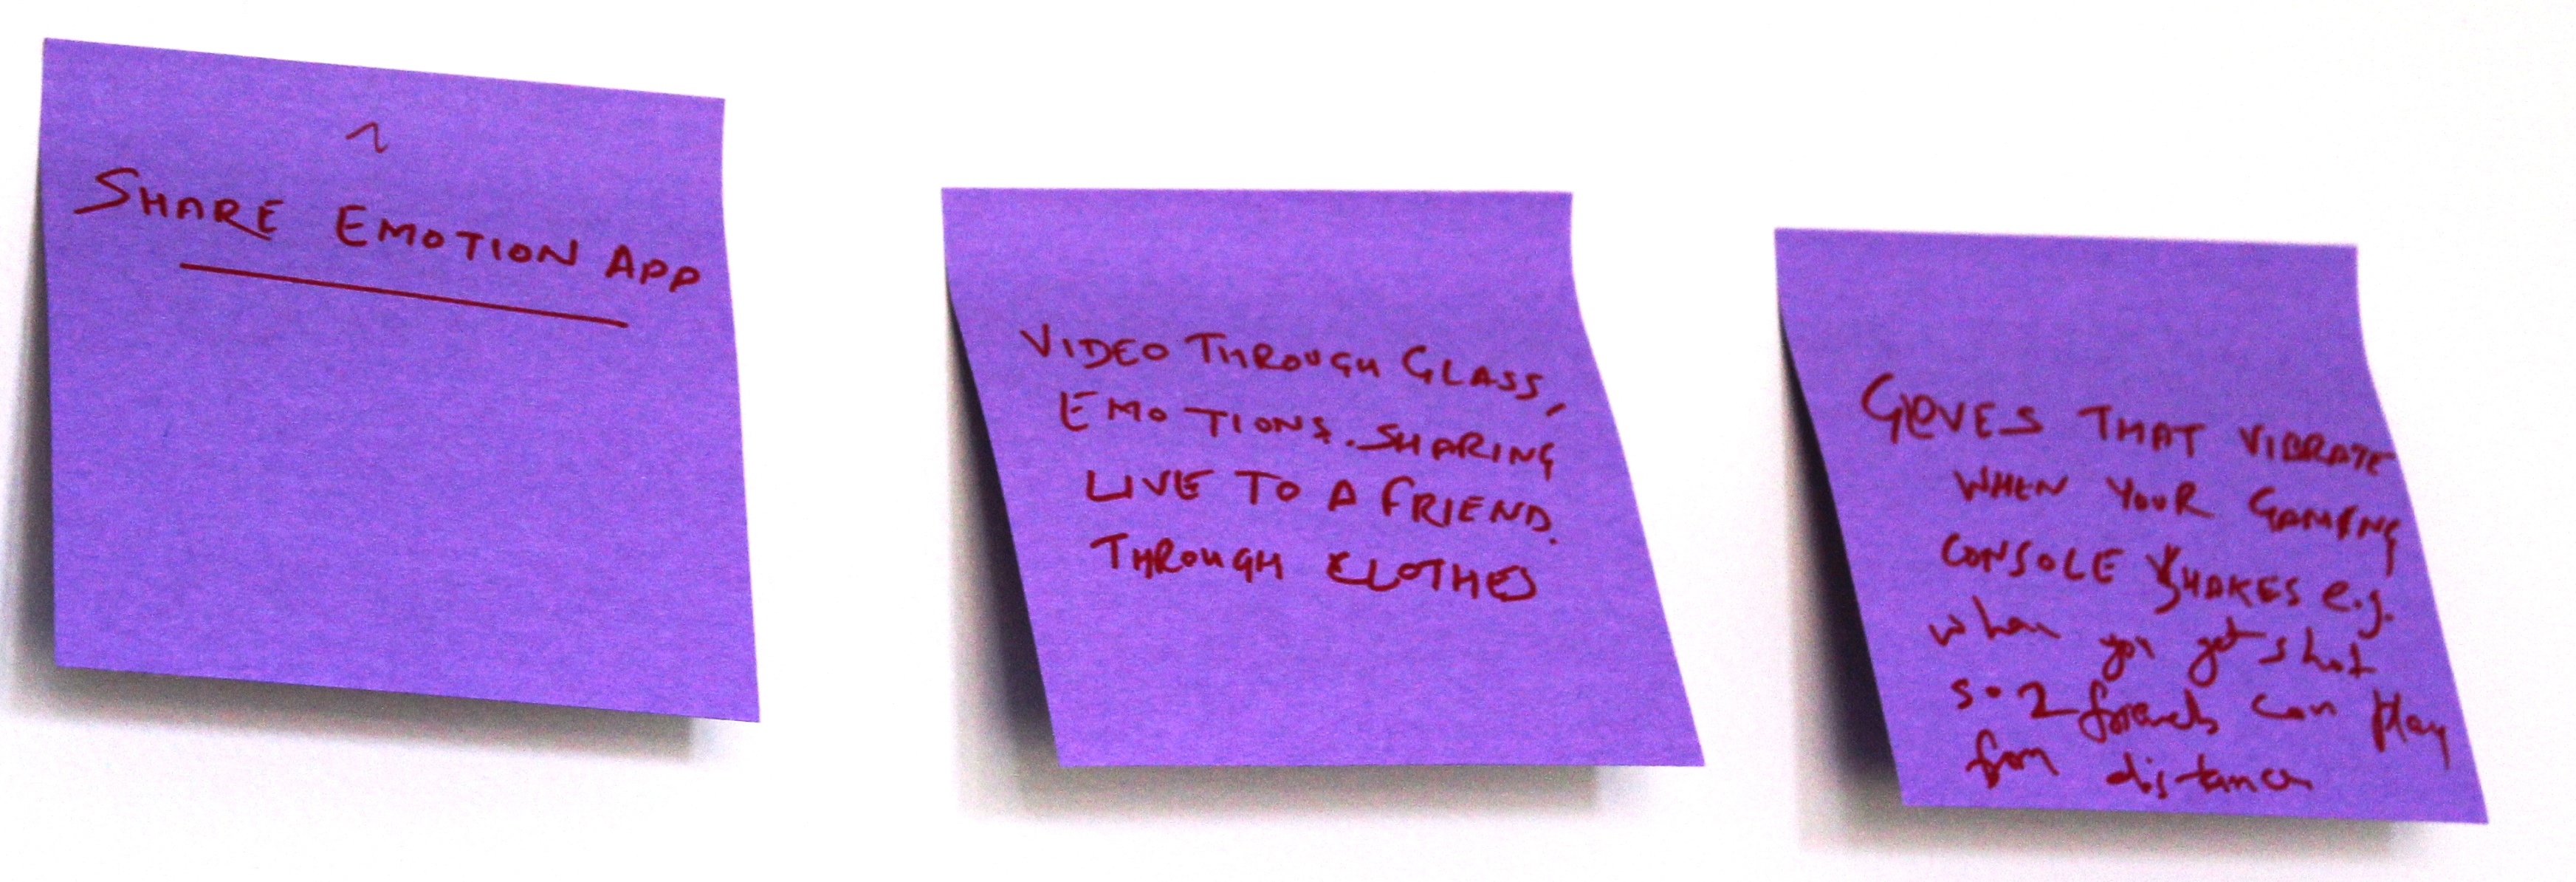 SHARE EMOTION APP
VIDEO THROUGH GLASS,
EMOTIONS. SHARING
LIVE TO A FRIEND.
THROUGH CLOTHES
GLOVES THAT VIBRATE
WHEN YOUR GAMING
CONSOLE SHAKES e.g.
when you get shot
so 2 friends can play
from distance